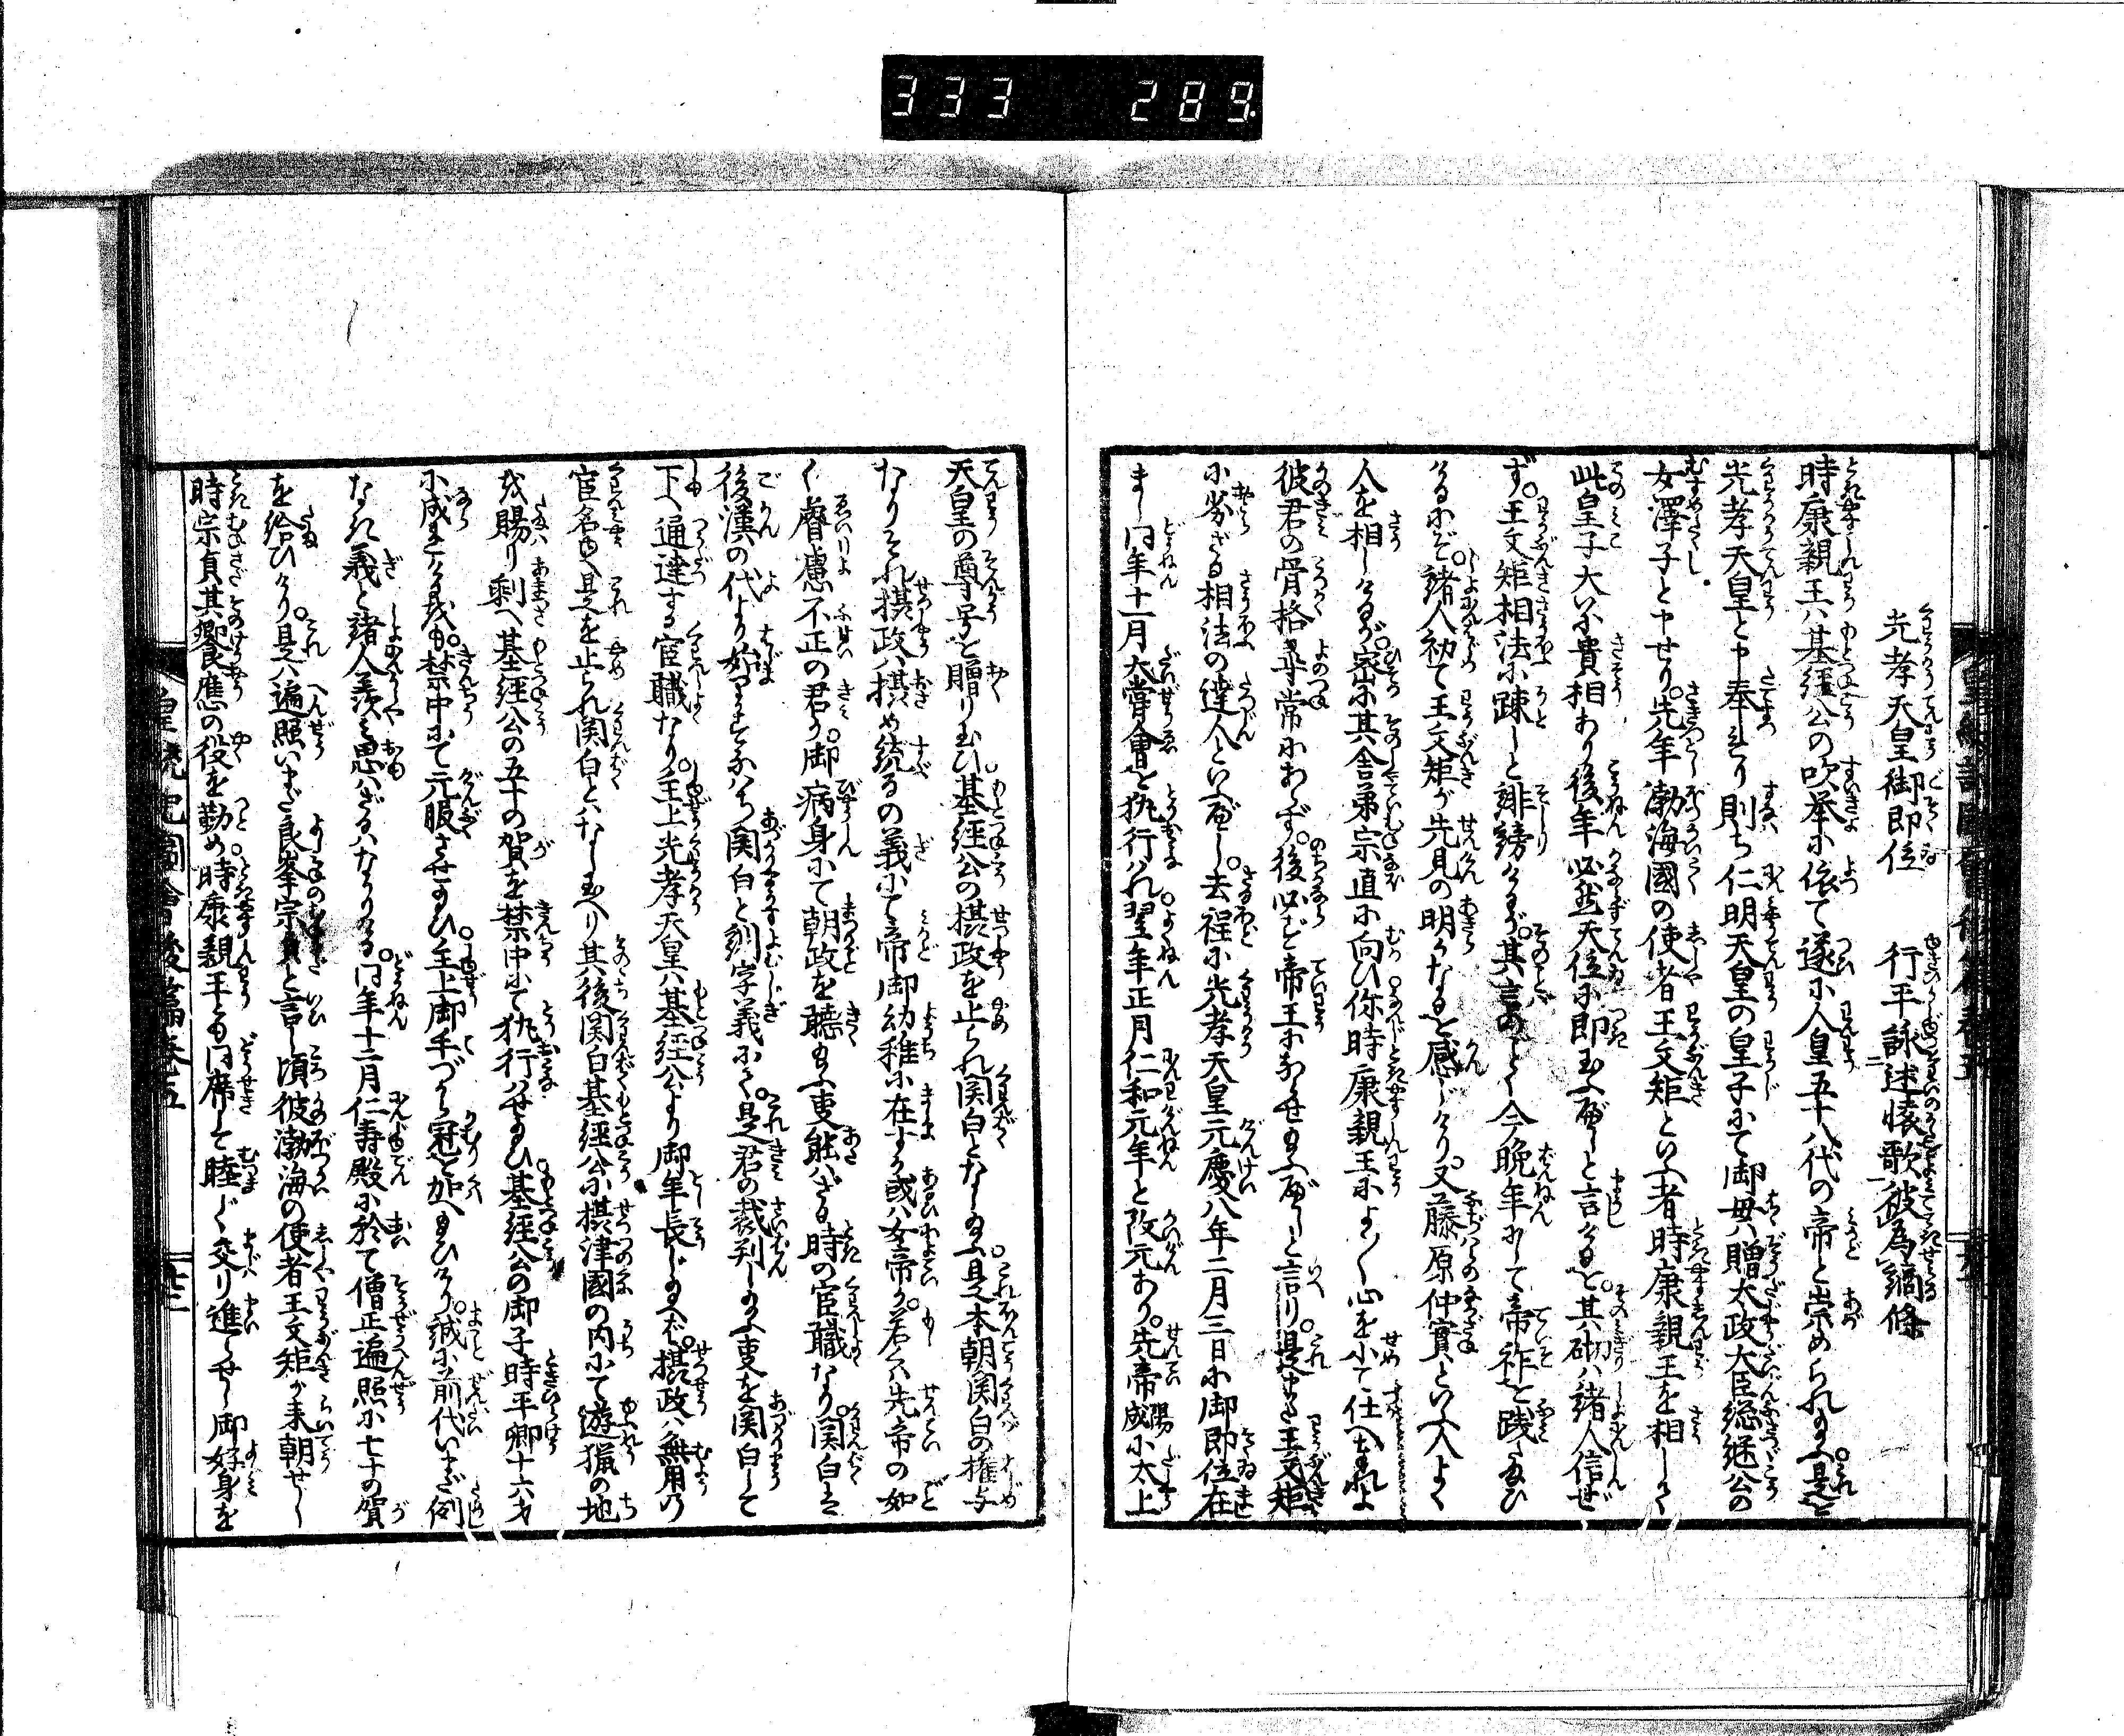 333 289
光孝天皇御即位 行平詠述懐歌被為謫條
時康親王ハ基経公の吹挙に依て遂に人皇五十八代の帝と崇められ給ふ是を
光孝天皇と申奉れり則ち仁明天皇の皇子にて御母ハ贈太政大臣総継公の
女澤子と申せり先年渤海國の使者王文矩といふ者時康親王を相して
此皇子大に貴相あり後年必然天位に即玉ふべしと言けるを其砌ハ諸人信ぜ
ず王文矩相法に疎しと誹謗けるが其言のごとく今晩年にして帝祚を践たまひ
けるにぞ諸人初て王文矩が先見の明かなるを感じけり又藤原仲實といふ人よく
人を相しけるが密に其舎弟宗直に向ひ你時康親王によく〳〵心を尽て仕へまゐれよ
彼君の骨格尋常にあらず後必ず帝王にならせ給ふべしと言り是也王文矩
に劣ざる相法の達人といふべし去程に光孝天皇元慶八年二月三日に御即位在
まし同年十一月大嘗會を執行ハれ翌年正月仁和元年と改元あり先帝陽成に太上
天皇の尊号を贈り玉ひ基経公の摂政を止られ関白となし給ふ是本朝関白の権与
なりそれ摂政ハ摂め統るの義にて帝御幼稚に在すか或ハ女帝か若くハ先帝の如
く睿慮不正の君か御病身にて朝政を聴給ふ事能ハざる時の官職なり関白は
後漢の代より始りすなハち関白と訓字義にて是君の裁判し給ふ事を関白して
下へ通達する官職なり主上光孝天皇ハ基経公より御年長じ給へバ摂政ハ無用の
官名也と是を止られ関白とハなし玉へり其後関白基経公に摂津國の内にて遊猟の地
を賜り剰へ基経公の五十の賀を禁中にて執行ハせ給ひ基経公の御子時平卿十六才
に成けるをも禁中にて元服させ給ひ主上御手づから冠を加へ給ひけり誠に前代いまだ例
なき義と諸人羨ミ思ハざるハなかりける同年十二月仁寿殿に於て僧正遍照に七十の賀
を給ひけり是ハ遍照いまだ良峯宗貞と言し頃彼渤海の使者王文矩が来朝せし
時宗貞其饗應の役を勤め時康親王とも同席して睦じく交り進らせし御好身を
皇統記圖會後篇巻五